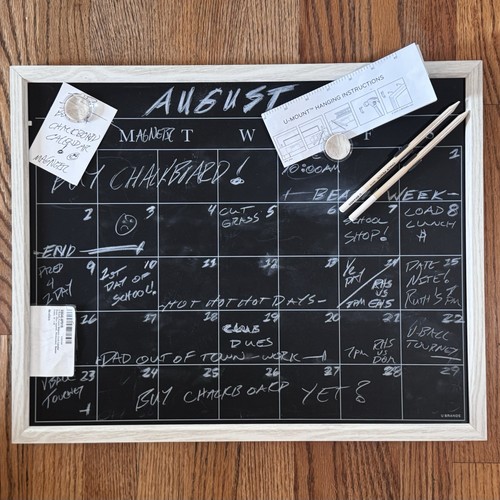 AUGUST
U-MOUNT™ HANGING INSTRUCTIONS
CHALKBOARD
CALENDAR
MAGNETIC
MAGNETIC T W F
BUY CHALKBOARD!
10:00AM
1
BEACH WEEK
2 3 4 5 6 7 8
END
CUT
GRASS
SCHOOL
SHOP!
LOAD
LUNCH
#
9 10 11 12 13 14 15
PRED
4
2DAY
1ST
DAY OF
SCHOOL!
HOT HOT HOT DAYS
RHS
VS
EHS
DATE
NITE!
RUTH'S
16 17 18 19 20 21 22
CLUB
DUES
DAD OUT OF TOWN - WORK
7PM
RHS
VS
V BALL
TOURNEY
23 24 25 26 27 28 29
V BALL
TOURNEY
BUY CHALKBOARD YET?
U BRANDS